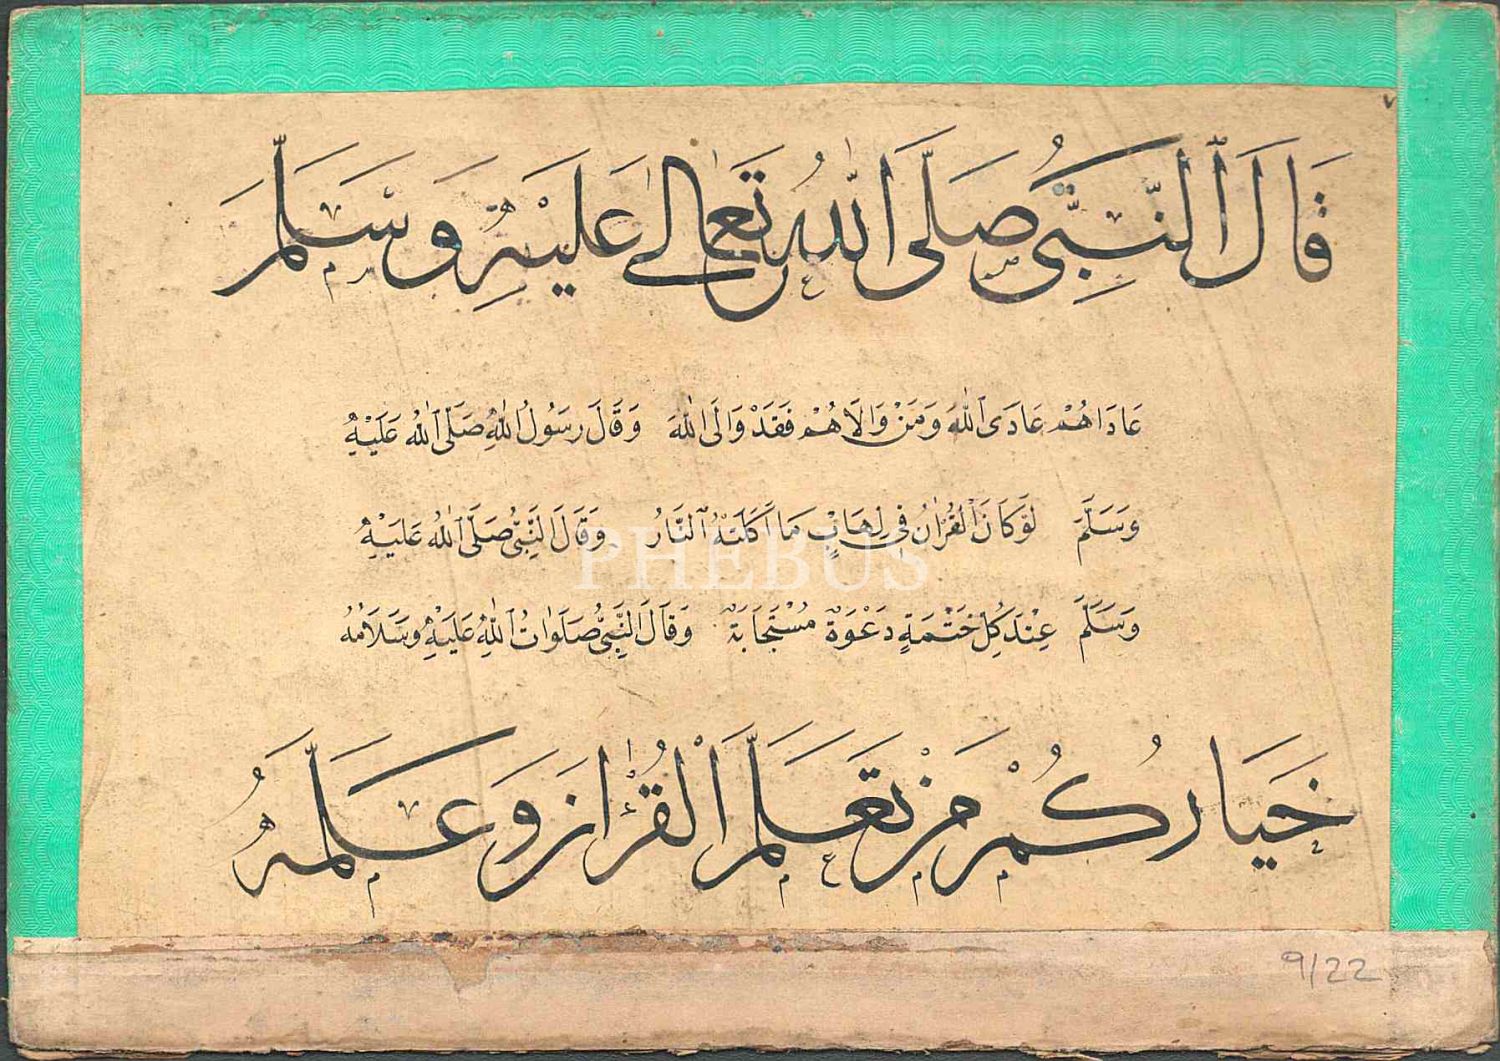 قَالَ ٱلنَّبِيُّ صَلَّى ٱللّٰهُ تَعَالٰى عَلَيْهِ وَسَلَّمَ
عَادَاهُمْ عَادَى ٱللّٰهَ وَمَنْ وَالَاهُمْ فَقَدْ وَالَى ٱللّٰهَ وَقَالَ رَسُولُ ٱللّٰهِ صَلَّى ٱللّٰهُ عَلَيْهِ
وَسَلَّمَ لَوْ كَانَ ٱلْقُرْاٰنُ فِي اِهَابٍ مَا اَكَلَتْهُ ٱلنَّارُ وَقَالَ ٱلنَّبِيُّ صَلَّى ٱللّٰهُ عَلَيْهِ
PHEBUS
وَسَلَّمَ عِنْدَ كُلِّ خَتْمَةٍ دَعْوَةٌ مُسْتَجَابَةٌ وَقَالَ ٱلنَّبِيُّ صَلَوَاتُ ٱللّٰهِ عَلَيْهِ وَسَلَامُهُ
خِيَارُكُمْ مَنْ تَعَلَّمَ ٱلْقُرْاٰنَ وَعَلَّمَهُ
9/22